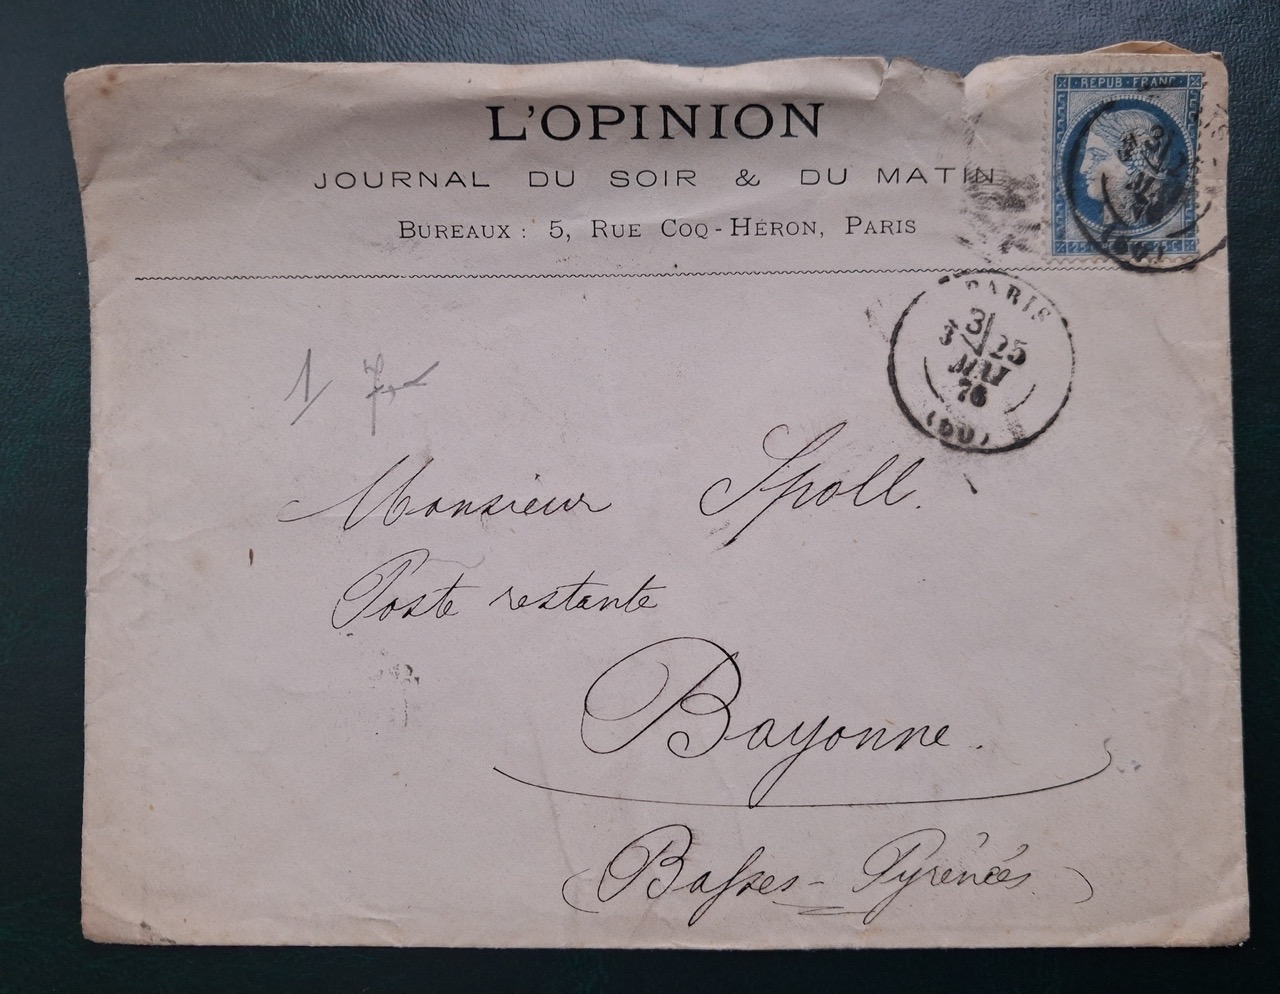 L'OPINION
JOURNAL DU SOIR & DU MATIN
BUREAUX : 5, RUE COQ-HÉRON, PARIS
REPUB · FRANC
25 C
PARIS
3
25
MAI
76
(60)
1
Monsieur Spoll.
Poste restante
Bayonne.
(Basses-Pyrénées)